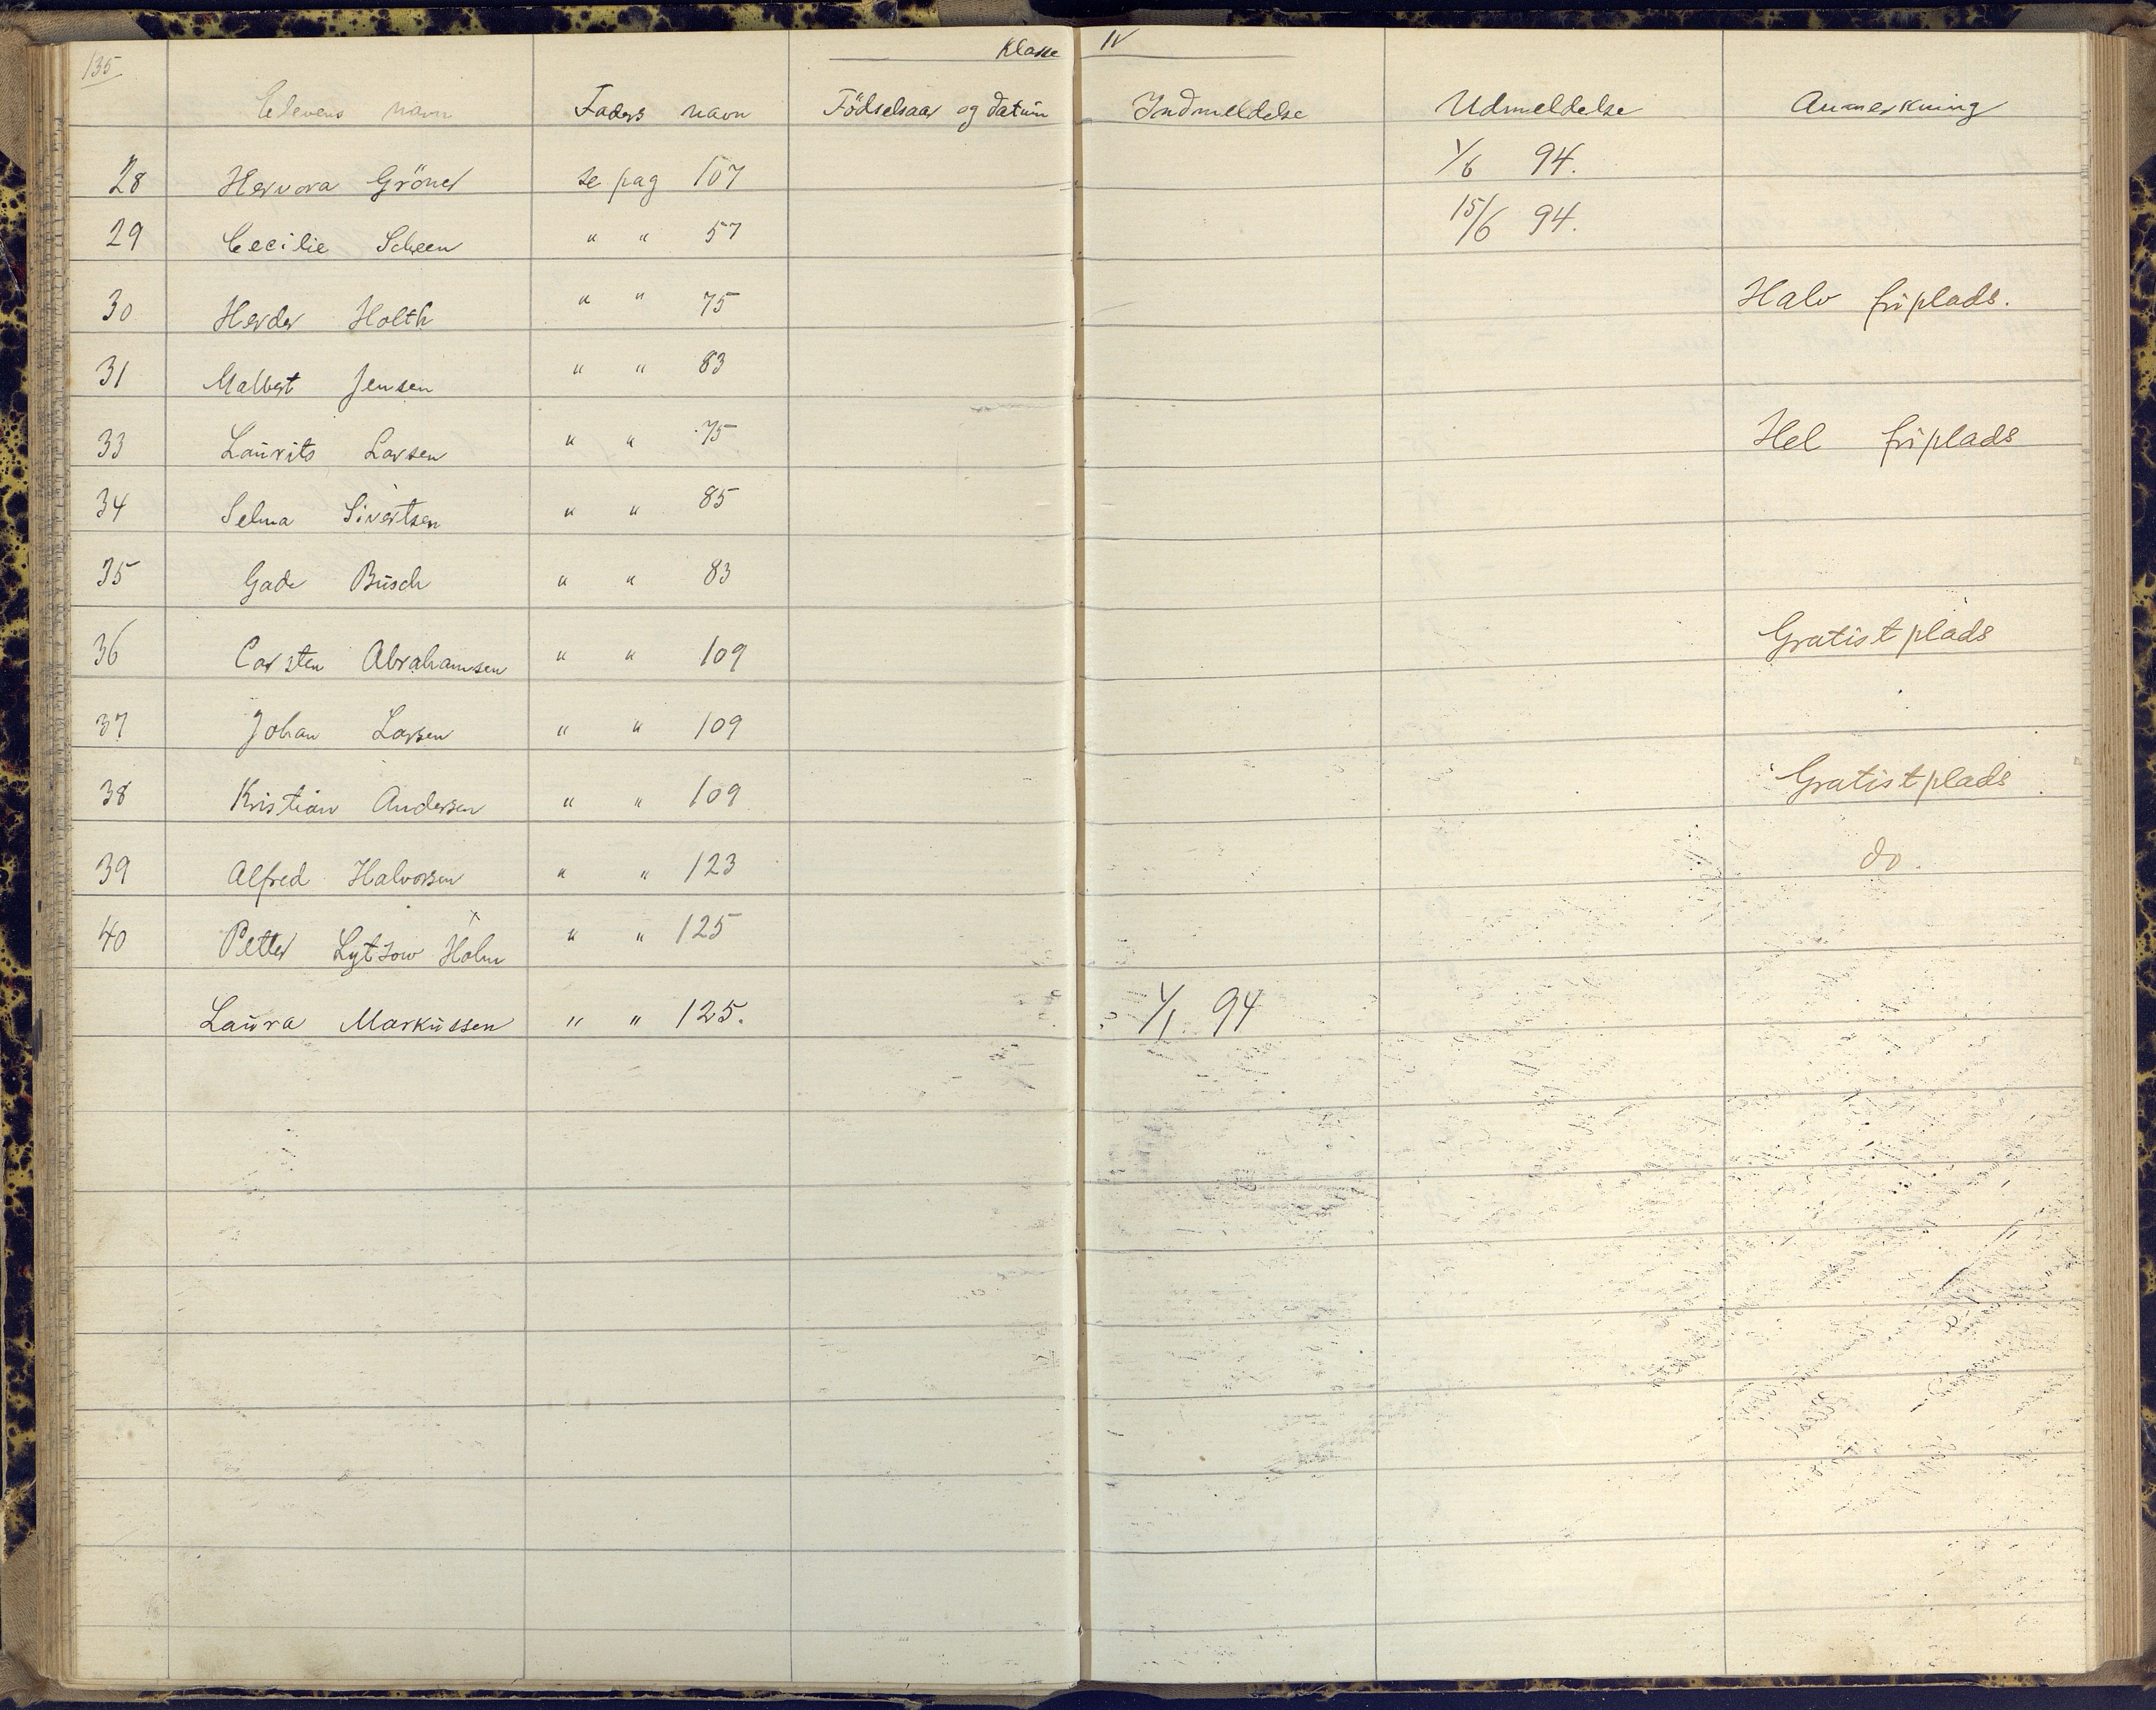 135 Klasse IV
Elevens navn Faders navn Födselsaar og datum Indmeldelse Udmeldelse Anmerkning
28 Hervora Gröner se pag 107 1/6 94.
29 Cecilie Scheen " " 57 15/6 94.
30 Herder Holth " " 75 Halv friplads.
31 Malbert Jensen " " 83
33 Laurits Larsen " " 75 Hel friplads
34 Selma Sivertsen " " 85
35 Gade Busch " " 83
36 Carsten Abrahamsen " " 109 Gratistplads
37 Johan Larsen " " 109
38 Kristian Andersen " " 109 Gratistplads
39 Alfred Halvorsen " " 123 do.
40 Petter Lytzow Holm x " " 125
Laura Markussen " " 125. 1/1. 94